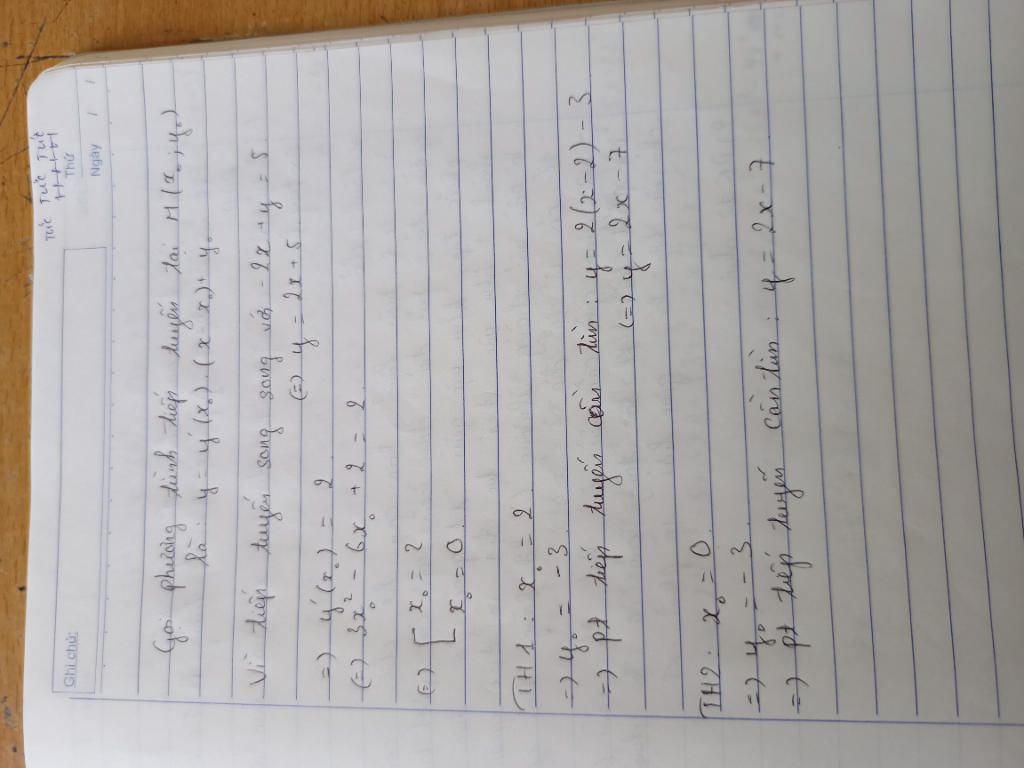 Tức Tức Tức
Ghi chú:
Thứ
Ngày / /
Gọi phương trình tiếp tuyến tại M(x₀, y₀)
là: y = y'(x₀).(x - x₀) + y₀
Vì tiếp tuyến song song với -2x + y = 5
(=) y = 2x + 5
=) y'(x₀) = 2
(=) 3x₀² - 6x₀ + 2 = 2
(=) [ x₀ = 2
x₀ = 0
TH1: x₀ = 2
=) y₀ = -3
=) pt tiếp tuyến cần tìm: y = 2(x-2) - 3
(=) y = 2x - 7
TH2: x₀ = 0
=) y₀ = -3
=) pt tiếp tuyến cần tìm: y = 2x - 7